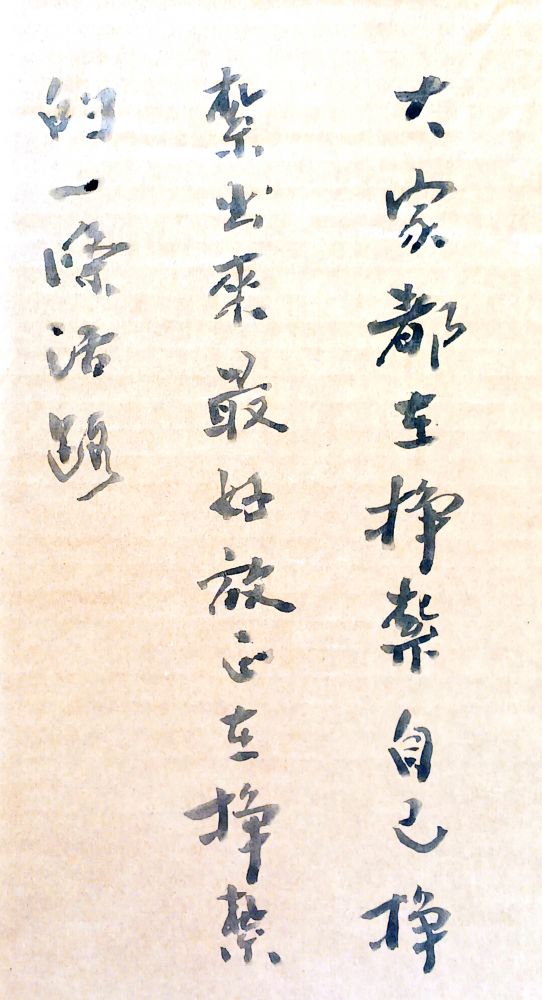 大家都在掙紮自己掙
紮出來最好放正在掙紮
的一條活路